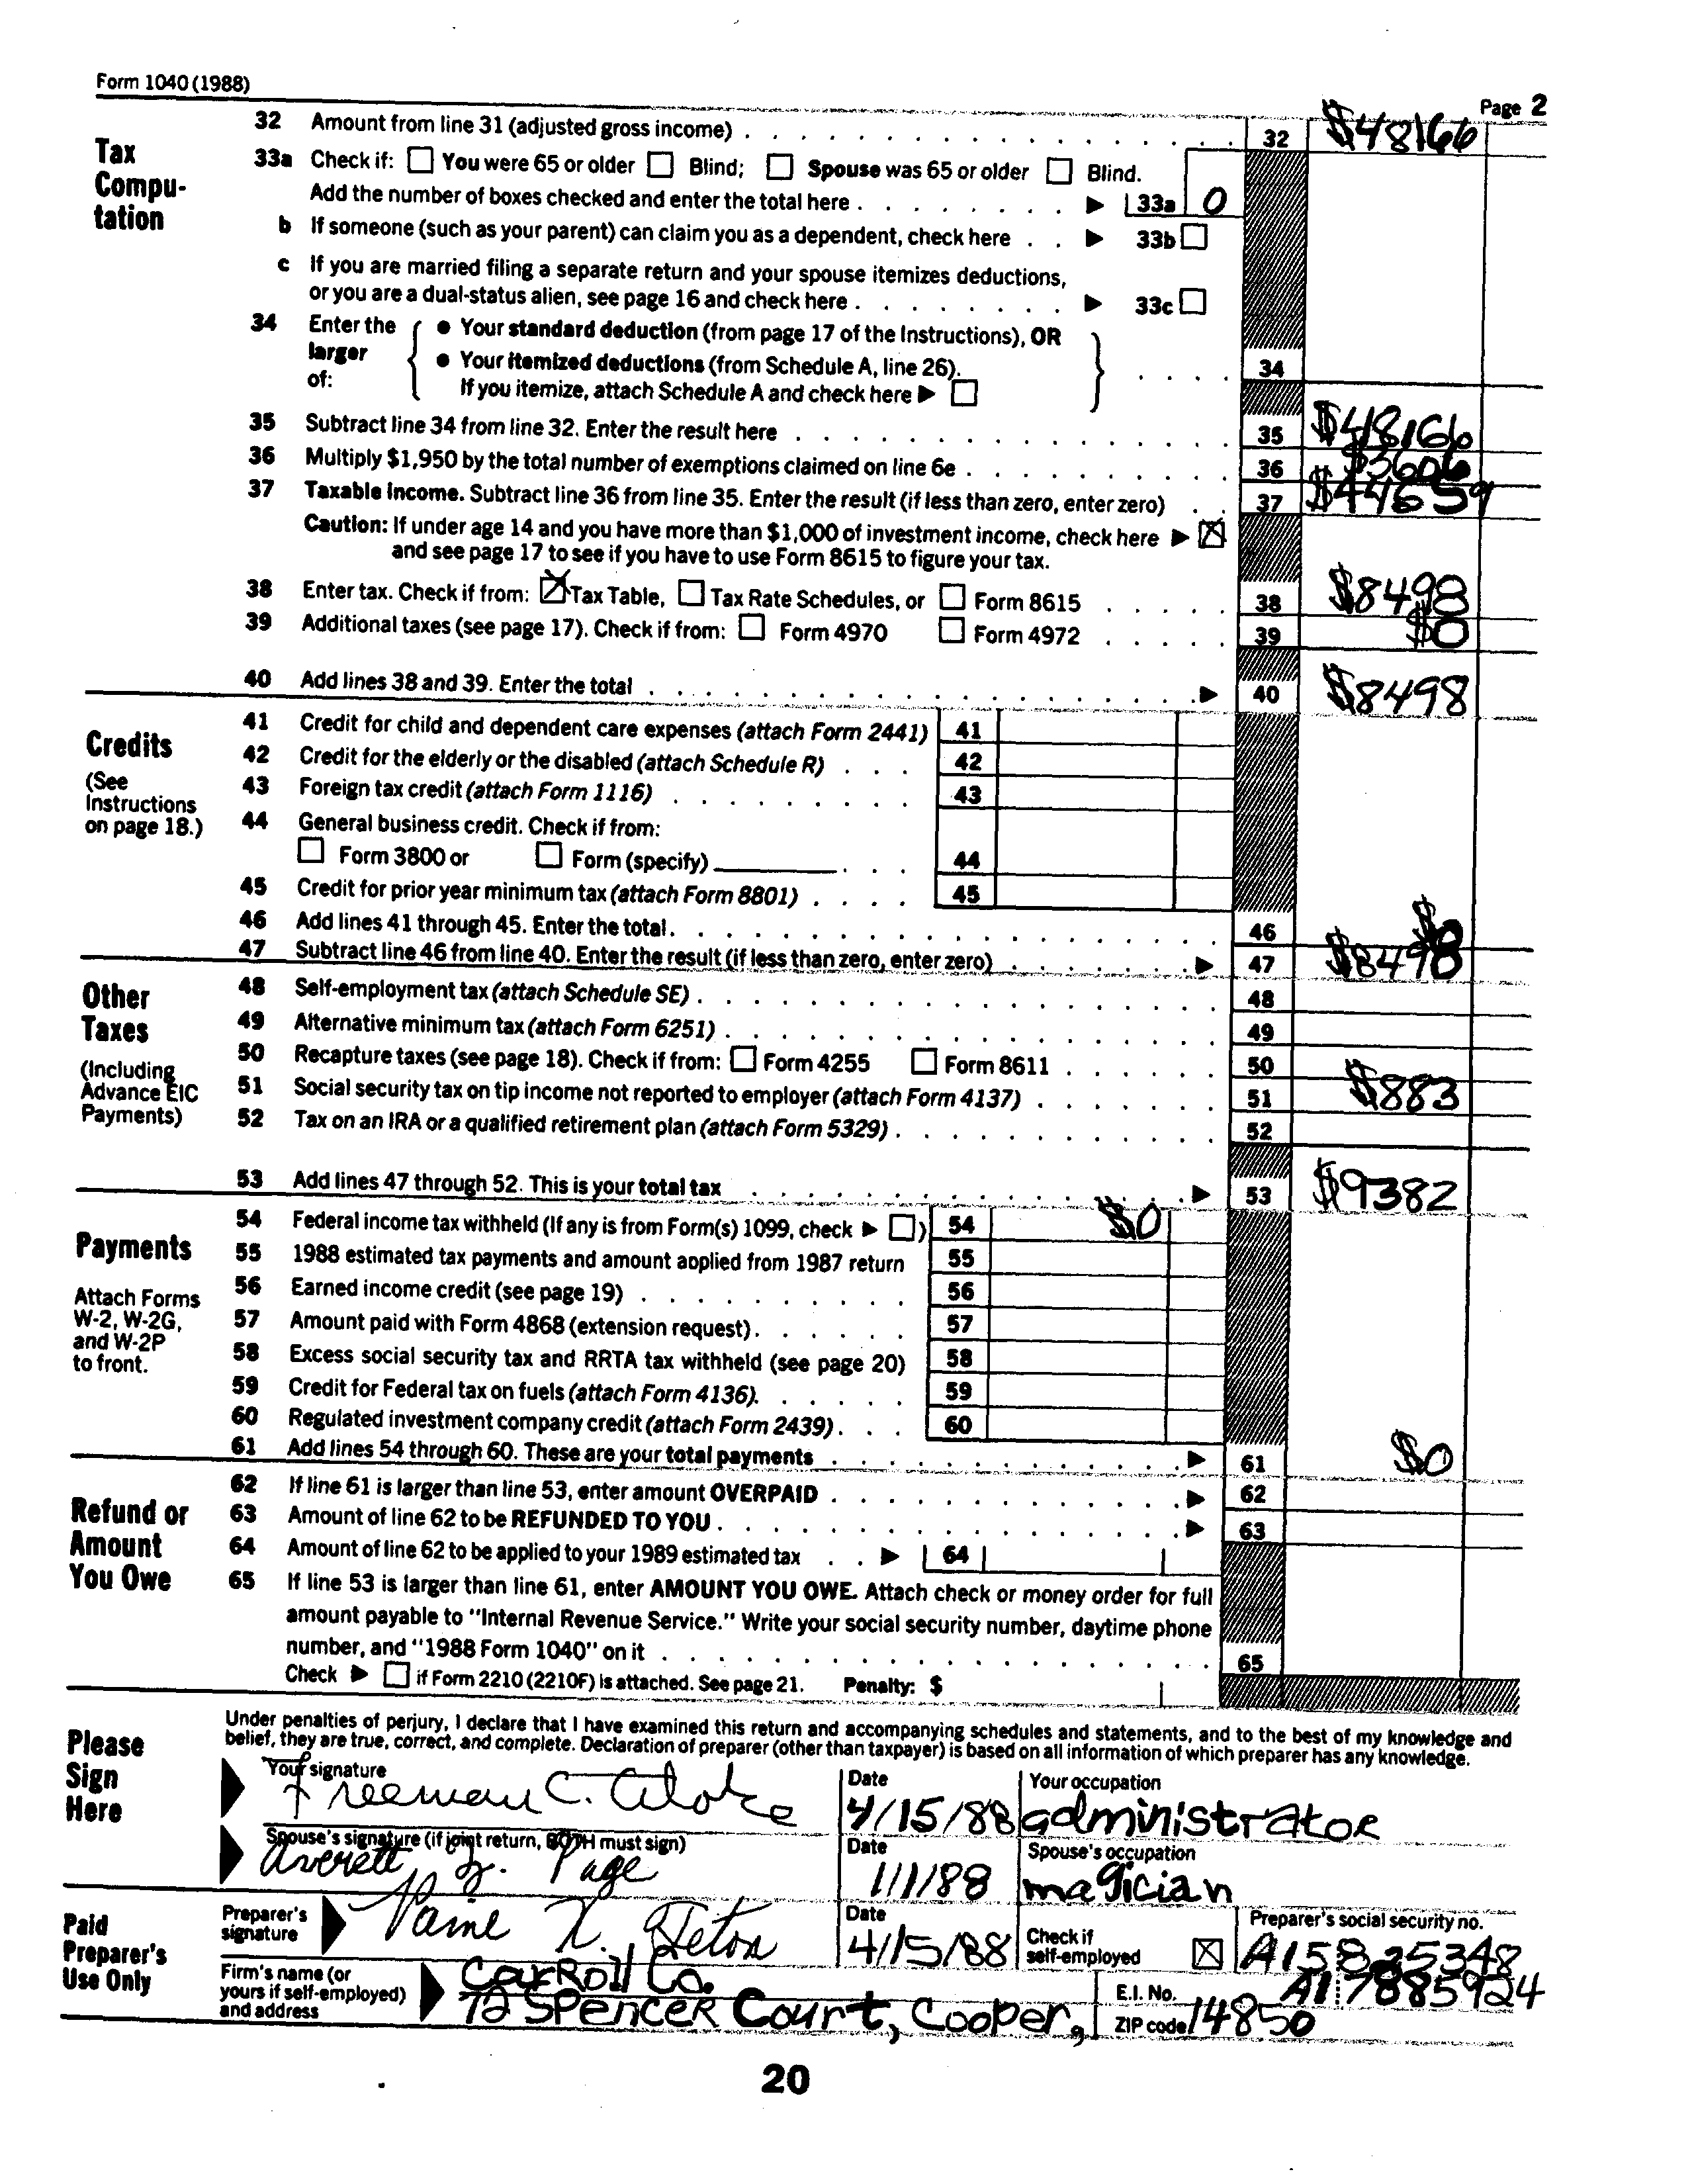 Form 1040 (1988)
Page 2
Tax Compu-tation
32 Amount from line 31 (adjusted gross income) 32 $48166
33a Check if: You were 65 or older Blind; Spouse was 65 or older Blind.
Add the number of boxes checked and enter the total here 33a 0
b If someone (such as your parent) can claim you as a dependent, check here 33b
c If you are married filing a separate return and your spouse itemizes deductions,
or you are a dual-status alien, see page 16 and check here 33c
34 Enter the larger of:
● Your standard deduction (from page 17 of the Instructions), OR
● Your itemized deductions (from Schedule A, line 26).
If you itemize, attach Schedule A and check here
34
35 Subtract line 34 from line 32. Enter the result here 35 $48166
36 Multiply $1,950 by the total number of exemptions claimed on line 6e 36 $3606
37 Taxable income. Subtract line 36 from line 35. Enter the result (if less than zero, enter zero) 37 $44659
Caution: If under age 14 and you have more than $1,000 of investment income, check here X
and see page 17 to see if you have to use Form 8615 to figure your tax.
38 Enter tax. Check if from: X Tax Table, Tax Rate Schedules, or Form 8615 38 $8498
39 Additional taxes (see page 17). Check if from: Form 4970 Form 4972 39 $0
40 Add lines 38 and 39. Enter the total 40 $8498
Credits
(See Instructions on page 18.)
41 Credit for child and dependent care expenses (attach Form 2441) 41
42 Credit for the elderly or the disabled (attach Schedule R) 42
43 Foreign tax credit (attach Form 1116) 43
44 General business credit. Check if from:
Form 3800 or Form (specify) 44
45 Credit for prior year minimum tax (attach Form 8801) 45
46 Add lines 41 through 45. Enter the total 46 $0
47 Subtract line 46 from line 40. Enter the result (if less than zero, enter zero) 47 $8498
Other Taxes
(Including Advance EIC Payments)
48 Self-employment tax (attach Schedule SE) 48
49 Alternative minimum tax (attach Form 6251) 49
50 Recapture taxes (see page 18). Check if from: Form 4255 Form 8611 50
51 Social security tax on tip income not reported to employer (attach Form 4137) 51 $883
52 Tax on an IRA or a qualified retirement plan (attach Form 5329) 52
53 Add lines 47 through 52. This is your total tax 53 $9382
Payments
Attach Forms W-2, W-2G, and W-2P to front.
54 Federal income tax withheld (If any is from Form(s) 1099, check ) 54 $0
55 1988 estimated tax payments and amount applied from 1987 return 55
56 Earned income credit (see page 19) 56
57 Amount paid with Form 4868 (extension request) 57
58 Excess social security tax and RRTA tax withheld (see page 20) 58
59 Credit for Federal tax on fuels (attach Form 4136) 59
60 Regulated investment company credit (attach Form 2439) 60
61 Add lines 54 through 60. These are your total payments 61 $0
Refund or Amount You Owe
62 If line 61 is larger than line 53, enter amount OVERPAID 62
63 Amount of line 62 to be REFUNDED TO YOU 63
64 Amount of line 62 to be applied to your 1989 estimated tax 64
65 If line 53 is larger than line 61, enter AMOUNT YOU OWE. Attach check or money order for full
amount payable to "Internal Revenue Service." Write your social security number, daytime phone
number, and "1988 Form 1040" on it 65
Check if Form 2210 (2210F) is attached. See page 21. Penalty: $
Please Sign Here
Under penalties of perjury, I declare that I have examined this return and accompanying schedules and statements, and to the best of my knowledge and
belief, they are true, correct, and complete. Declaration of preparer (other than taxpayer) is based on all information of which preparer has any knowledge.
Your signature Freeman C. Date 4/15/88 Your occupation administrator
Spouse's signature (if joint return, BOTH must sign) Averett Page Date 1/1/88 Spouse's occupation magician
Paid Preparer's Use Only
Preparer's signature X. Date 4/15/88 Check if self-employed X Preparer's social security no. A15825348
Firm's name (or yours if self-employed) and address Carroll Co. E.I. No. A17885924
72 Spencer Court, Cooper, ZIP code 14850
20